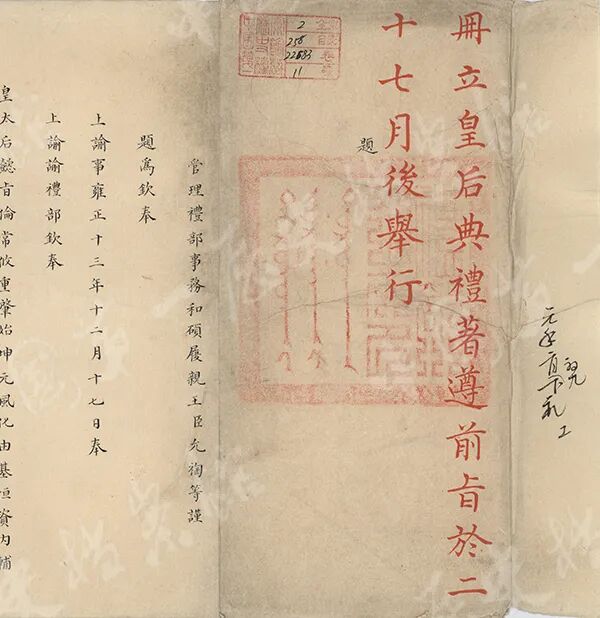 元年
冊立皇后典禮著遵前旨於二
十七月後舉行
2
11
題
管理禮部事務和碩履親王臣允祹等謹
題爲欽奉
上諭事雍正十三年十二月十七日奉
上諭諭禮部欽奉
皇太后懿旨倫常攸重肇始坤元風化由基恒資內輔